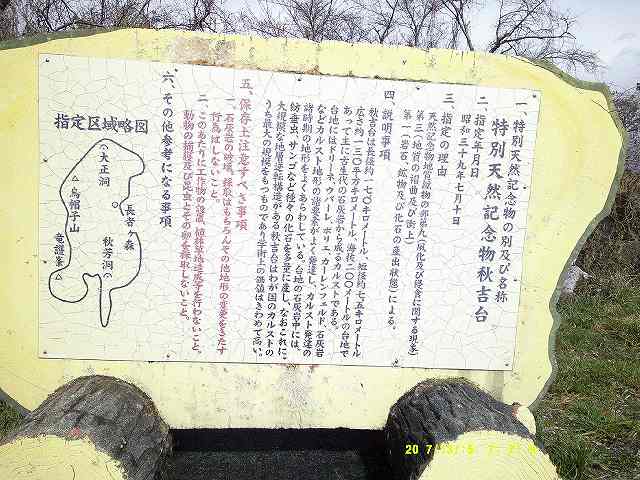 一、特別天然記念物の別及び名称
特別天然記念物秋吉台
二、指定年月日
昭和三十九年七月十日
三、指定の理由
天然記念物地質鉱物の部第九(風化及び侵食に関する現象)
第三(地質の褶曲及び衝上)
第一(岩石、鉱物及び化石の産出状態)による。
四、説明事項
秋吉台は長径約一七〇キロメートル、短径約七・五キロメートル
広さ約一三〇平方キロメートル、海抜二〇〇メートルの台地で
あって主に古生代の石灰岩から成るカルストである。
台地にはドリーネ、ウバーレ、ポリエ、カーレンフェルド、石灰岩
などカルスト地形の諸要素がよく発達し、カルスト発達の
諸時期の地形をよくあらわしている。台地の石灰岩中には、
紡垂虫、サンゴなど種々の化石を多量に産し、なおこれに、
大規模な地層逆転構造がある秋吉台はわが国のカルストの
うち最大の規模をもつものであり学術上の価値はきわめて高い。
五、保存上注意すべき事項
一、石灰岩の破壊、採取はもちろんその他地形の変更をきたす
行為はしないこと。
二、このあたりに工作物の設置、植林草地造成等を行わないこと。
動物の捕獲及び昆虫とその卵を採取しないこと。
六、その他参考になる事項
指定区域略図
大正洞
烏帽子山
長者ヶ森
秋芳洞
竜護峯